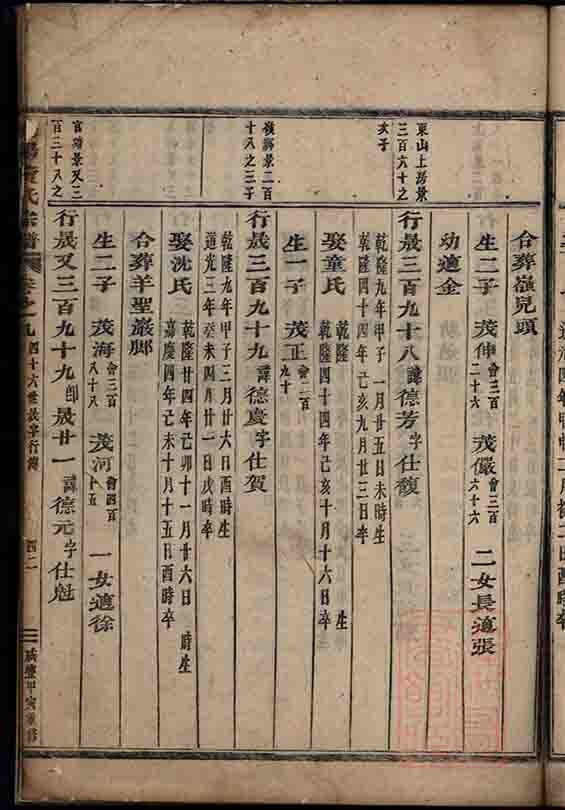 合葬嶺兒頭
生二子 茂伸會三百二十六 茂儼會三百六十六 二女長適張
幼適金
東山上房景三百六十之次子
行晟三百九十八諱德芳字仕馥
乾隆九年甲子一月廿五日未時生
乾隆四十四年己亥九月廿三日卒
娶童氏 乾隆 生
乾隆四十四年己亥十月十六日卒
生一子 茂正會二百九十
景二百十八之三子
行晟三百九十九諱德慶字仕賀
乾隆九年甲子三月廿六日酉時生
道光三年癸未四月廿一日戌時卒
娶沈氏 乾隆廿四年己卯十一月廿六日 時生
嘉慶四年己未十月十五日酉時卒
合葬羊聖巖脚
生二子 茂海會三百八十八 茂河會四百十五 一女適徐
官 景又三百三十八之
行晟又三百九十九郎晟廿一諱德元字仕魁
氏宗譜 卷之九 四十六世晟字行傳 四二 咸豐甲寅重修